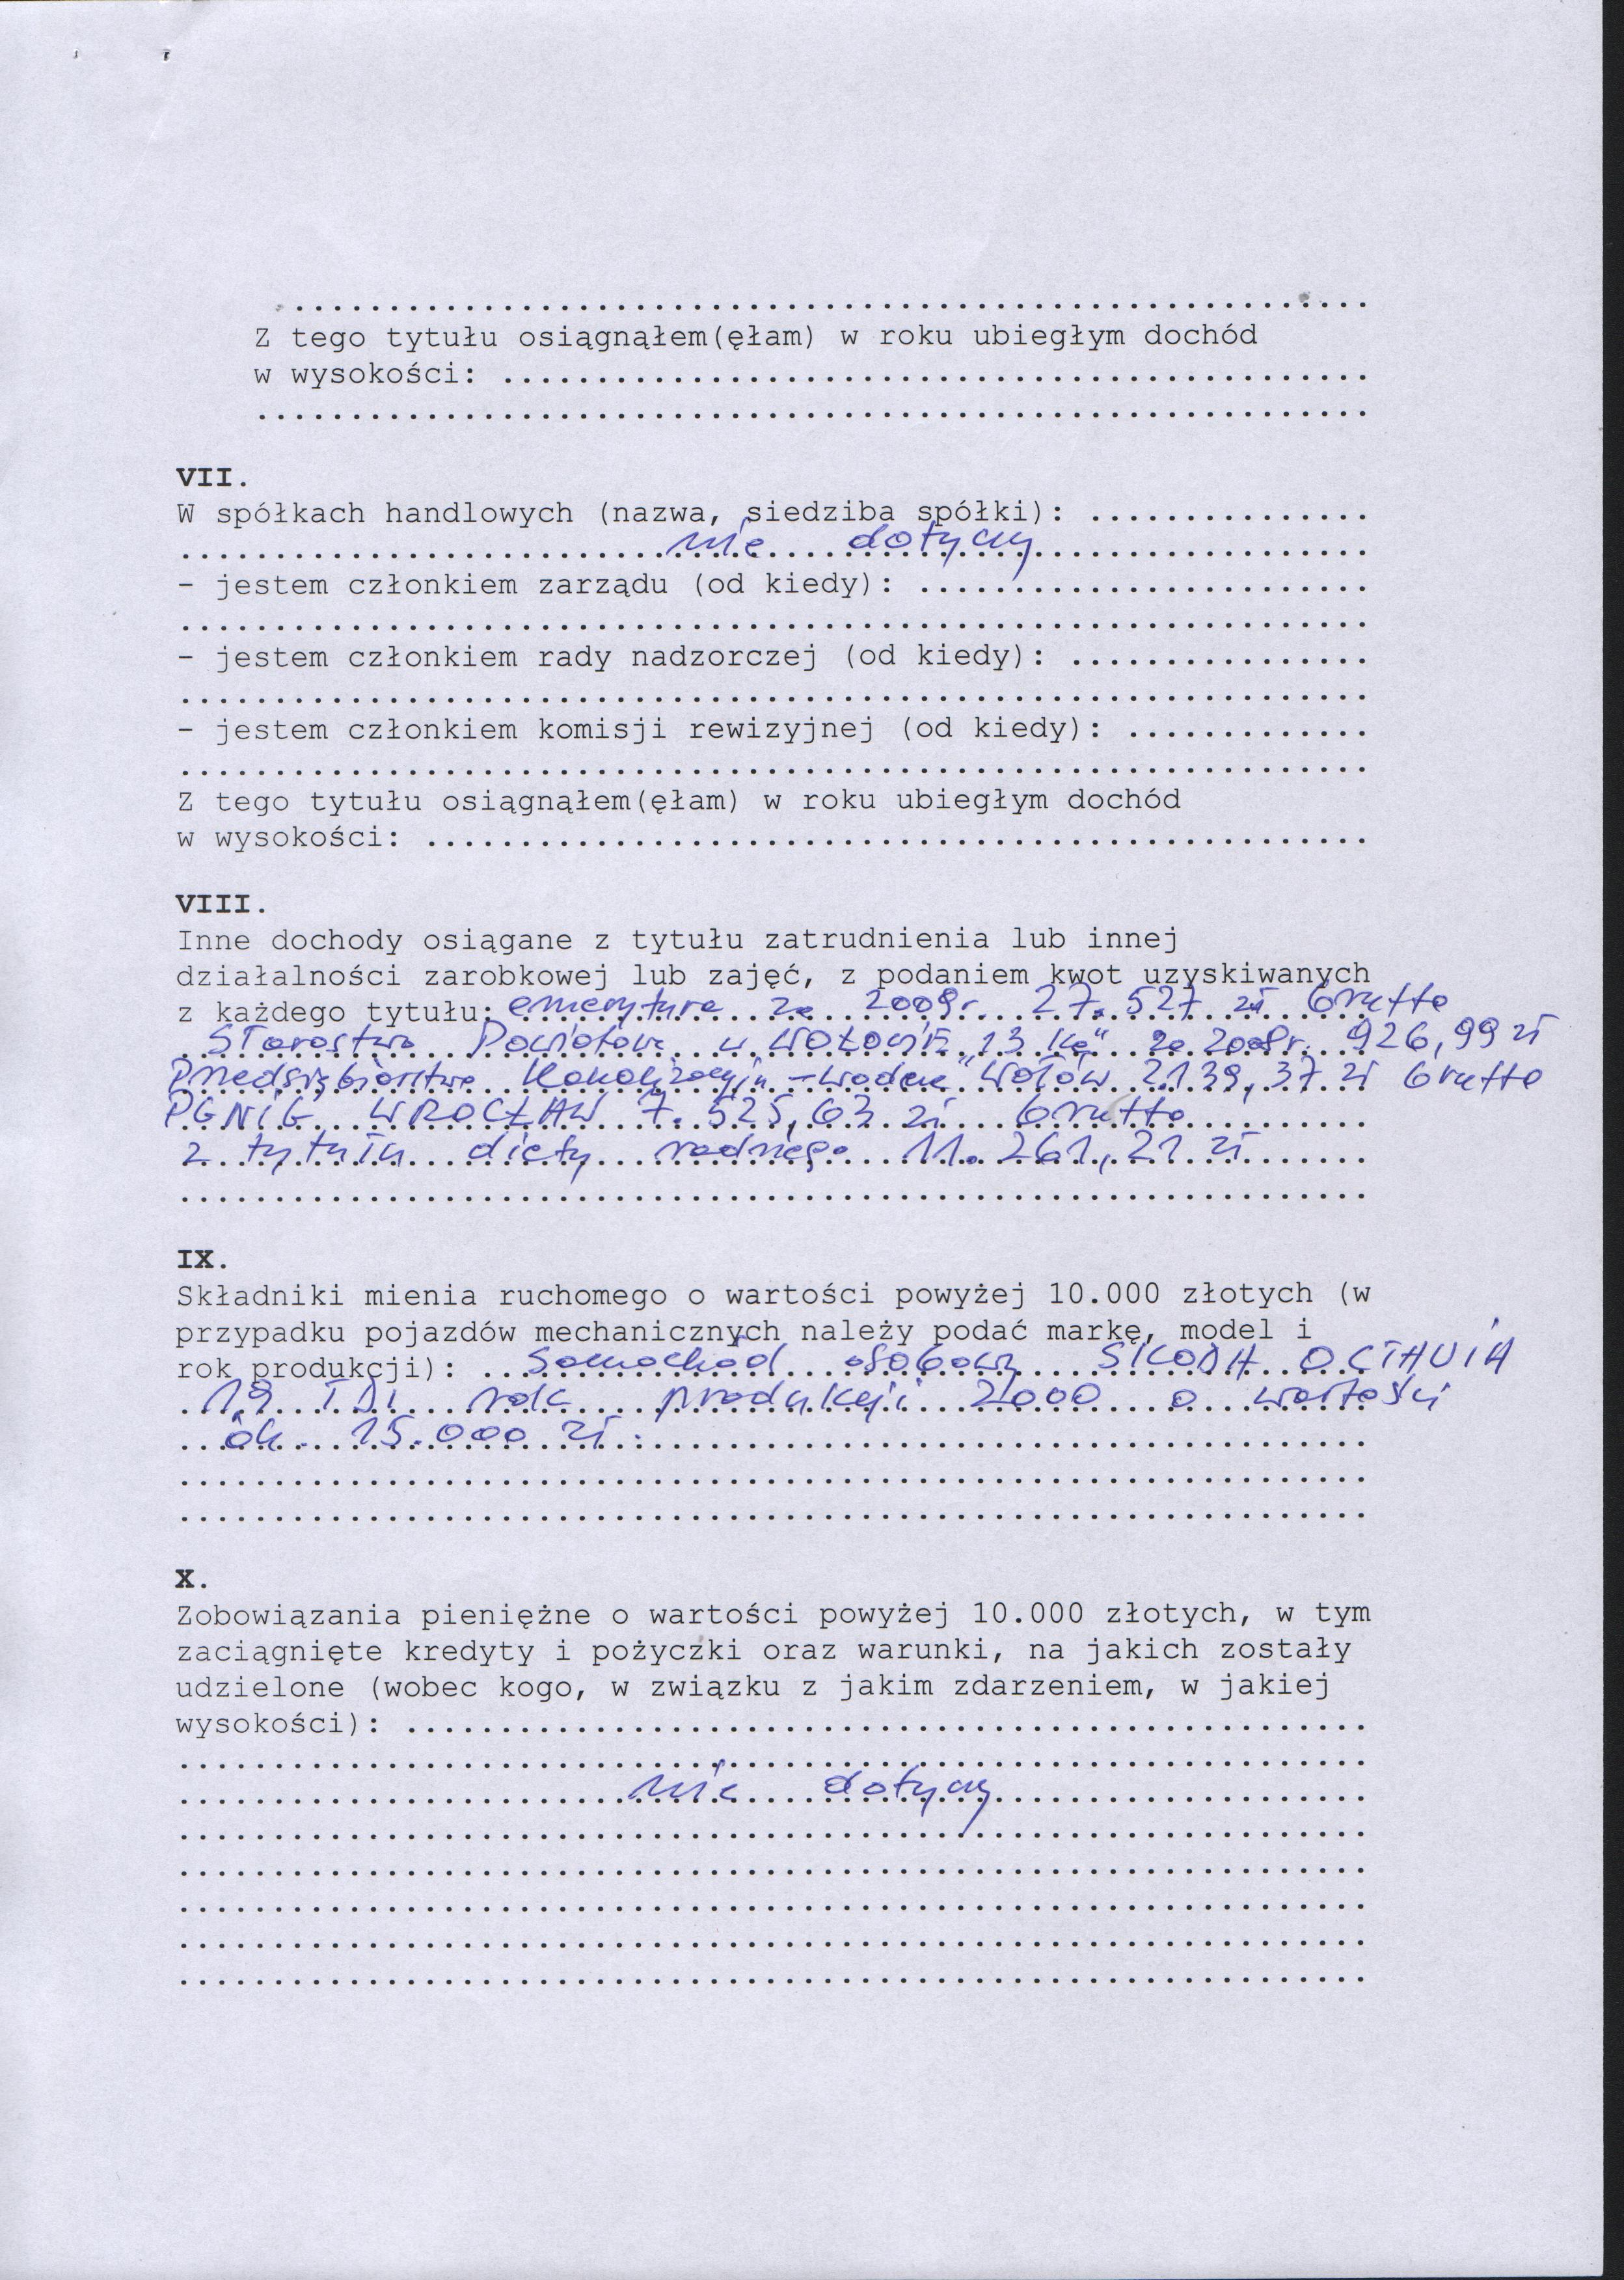 ...............................................................
Z tego tytułu osiągnąłem(ęłam) w roku ubiegłym dochód
w wysokości: ..............................................
...............................................................
VII.
W spółkach handlowych (nazwa, siedziba spółki): ...............
nie dotyczy
- jestem członkiem zarządu (od kiedy): ........................
...............................................................
- jestem członkiem rady nadzorczej (od kiedy): ................
...............................................................
- jestem członkiem komisji rewizyjnej (od kiedy): .............
...............................................................
Z tego tytułu osiągnąłem(ęłam) w roku ubiegłym dochód
w wysokości: ..................................................
VIII.
Inne dochody osiągane z tytułu zatrudnienia lub innej
działalności zarobkowej lub zajęć, z podaniem kwot uzyskiwanych
z każdego tytułu: emerytura za 2009r. 27.527 zł brutto
Starostwo Powiatowe w WOŁOWIE "13 ka" za 2008r. 926,99 zł
Przedsiębiorstwo Kanalizacyjno-wodne" Wołów 2139,37 zł brutto
PGNiG WROCŁAW 7.525,63 zł brutto
z tytułu diety radnego 11.261,21 zł
...............................................................
IX.
Składniki mienia ruchomego o wartości powyżej 10.000 złotych (w
przypadku pojazdów mechanicznych należy podać markę, model i
rok produkcji): Samochód osobowy SKODA OCTAVIA
19 TDI rok produkcji 2000 o wartości
ok. 15.000 zł.
...............................................................
...............................................................
X.
Zobowiązania pieniężne o wartości powyżej 10.000 złotych, w tym
zaciągnięte kredyty i pożyczki oraz warunki, na jakich zostały
udzielone (wobec kogo, w związku z jakim zdarzeniem, w jakiej
wysokości): ...................................................
...............................................................
nie dotyczy
...............................................................
...............................................................
...............................................................
...............................................................
...............................................................